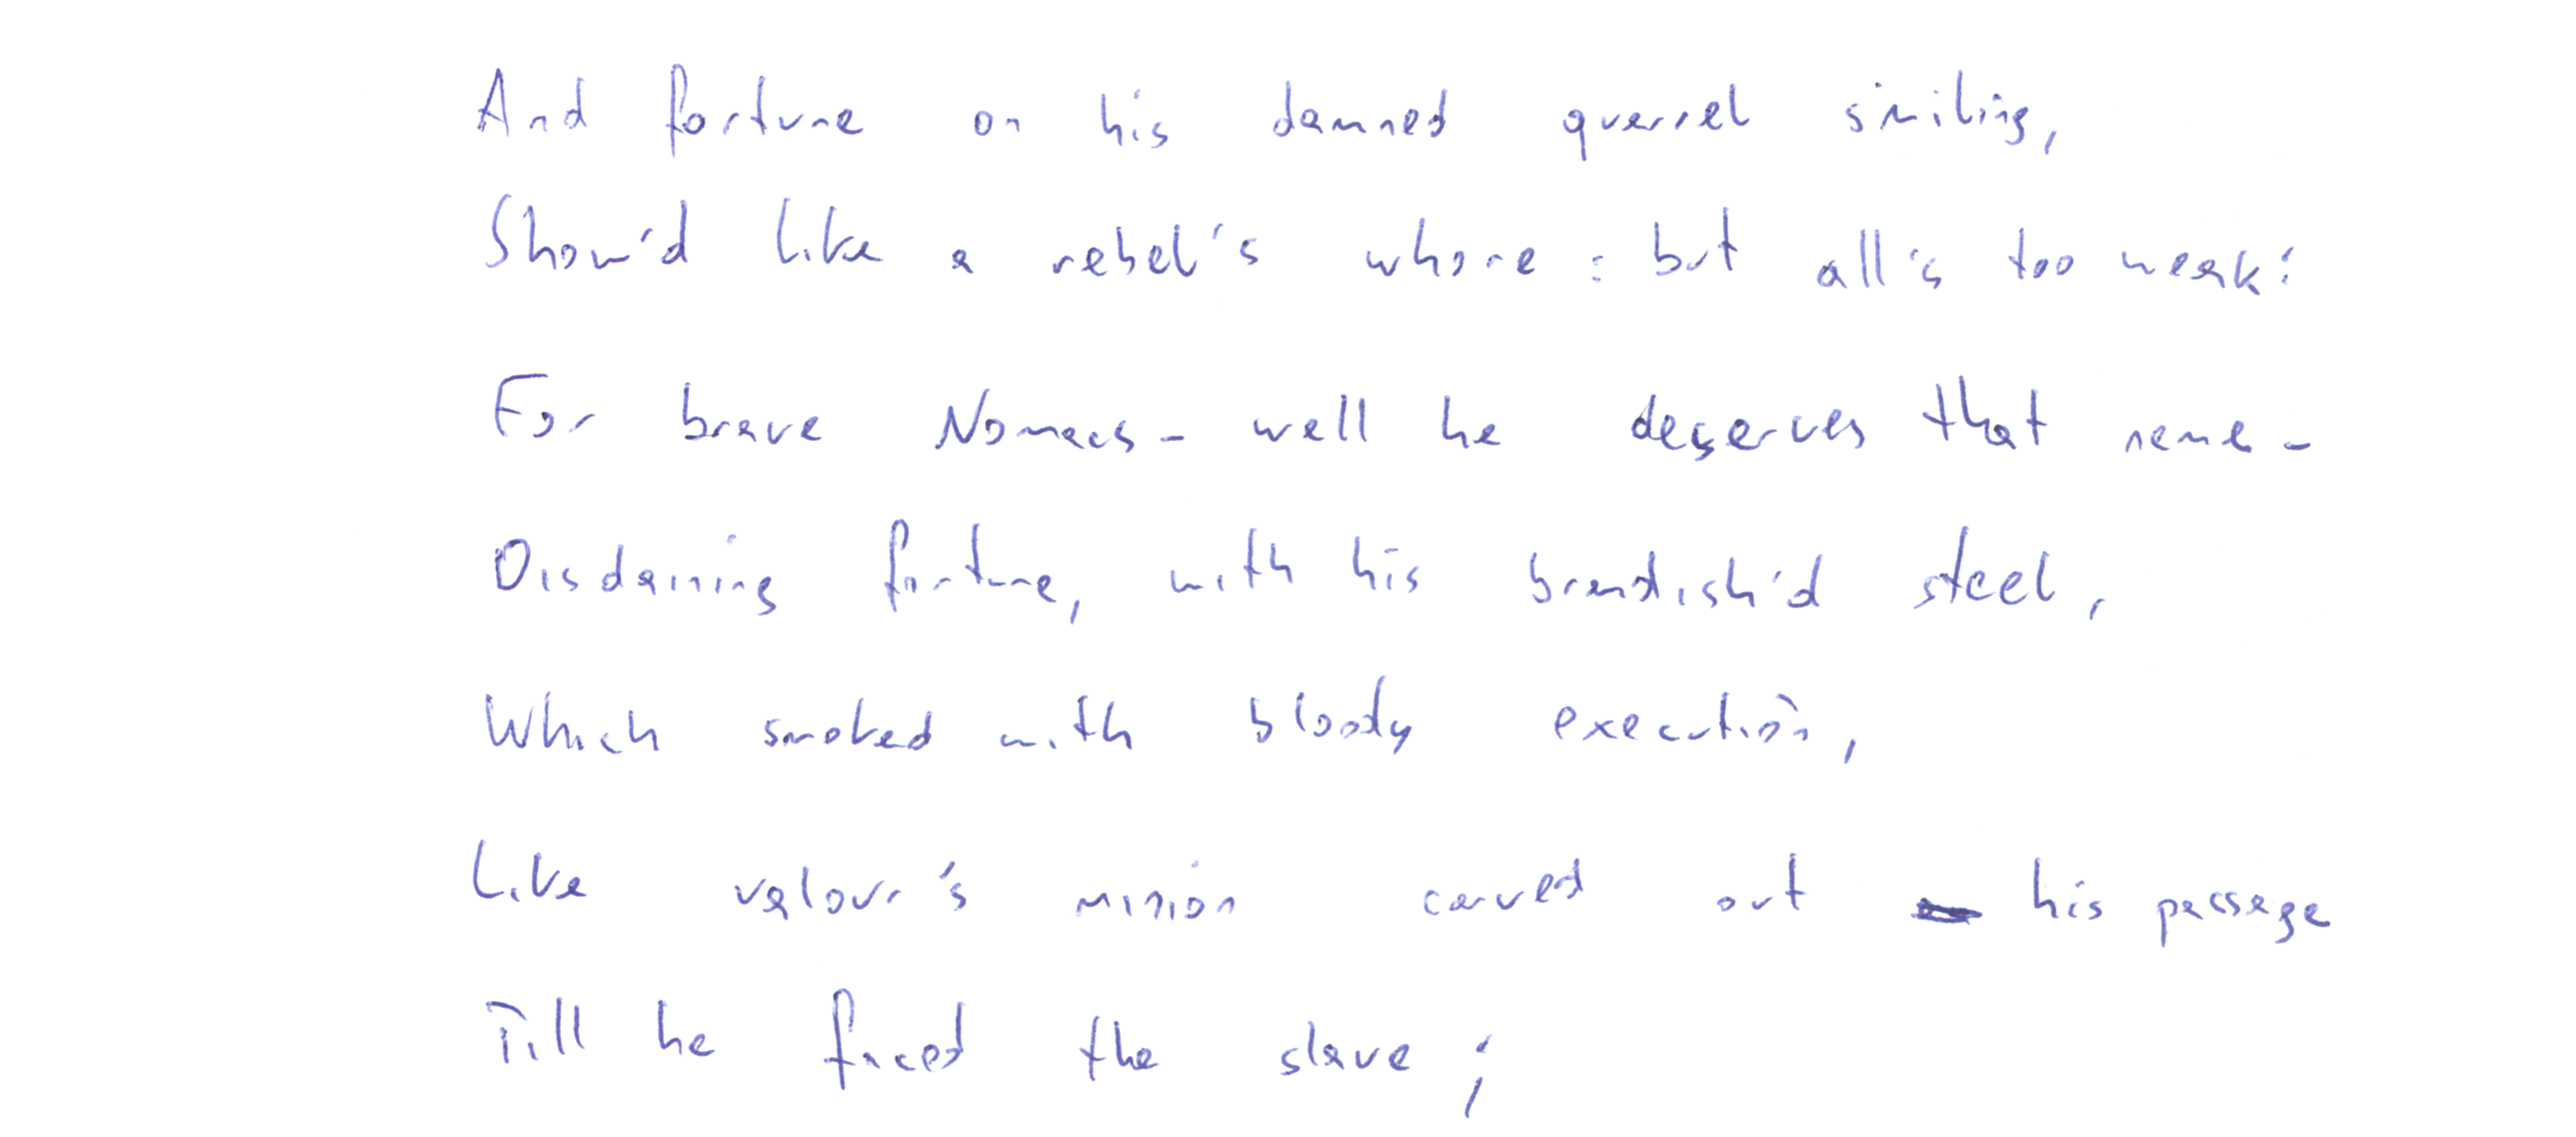 And fortune on his damned quarrel smiling,
Show'd like a rebel's whore : but all's too weak:
For brave Nomacs - well he deserves that name -
Disdaining fortune, with his brandish'd steel,
Which smoked with bloody execution,
Like valour's minion carved out his passage
Till he faced the slave ;